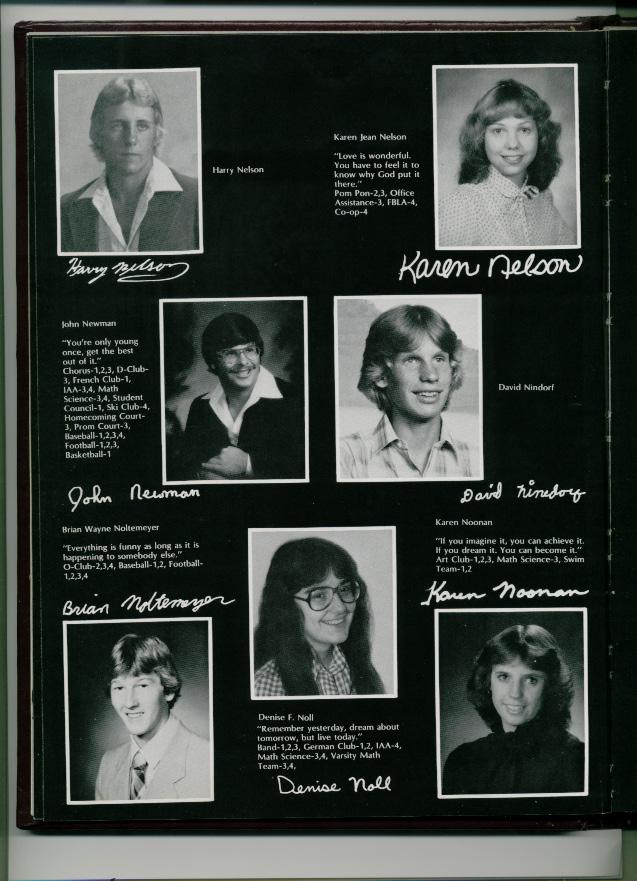 Harry Nelson
Harry Nelson
Karen Jean Nelson
"Love is wonderful.
You have to feel it to
know why God put it
there."
Pom Pon-2,3, Office
Assistance-3, FBLA-4,
Co-op-4
Karen Nelson
John Newman
"You're only young
once, get the best
out of it."
Chorus-1,2,3, D-Club-
3, French Club-1,
IAA-3,4, Math
Science-3,4, Student
Council-1, Ski Club-4,
Homecoming Court-
3, Prom Court-3,
Baseball-1,2,3,4,
Football-1,2,3,
Basketball-1
John Newman
David Nindorf
David Ninedorf
Brian Wayne Noltemeyer
"Everything is funny as long as it is
happening to somebody else."
O-Club-2,3,4, Baseball-1,2, Football-
1,2,3,4
Brian Noltemeyer
Karen Noonan
"If you imagine it, you can achieve it.
If you dream it. You can become it."
Art Club-1,2,3, Math Science-3, Swim
Team-1,2
Karen Noonan
Denise F. Noll
"Remember yesterday, dream about
tomorrow, but live today."
Band-1,2,3, German Club-1,2, IAA-4,
Math Science-3,4, Varsity Math
Team-3,4,
Denise Noll